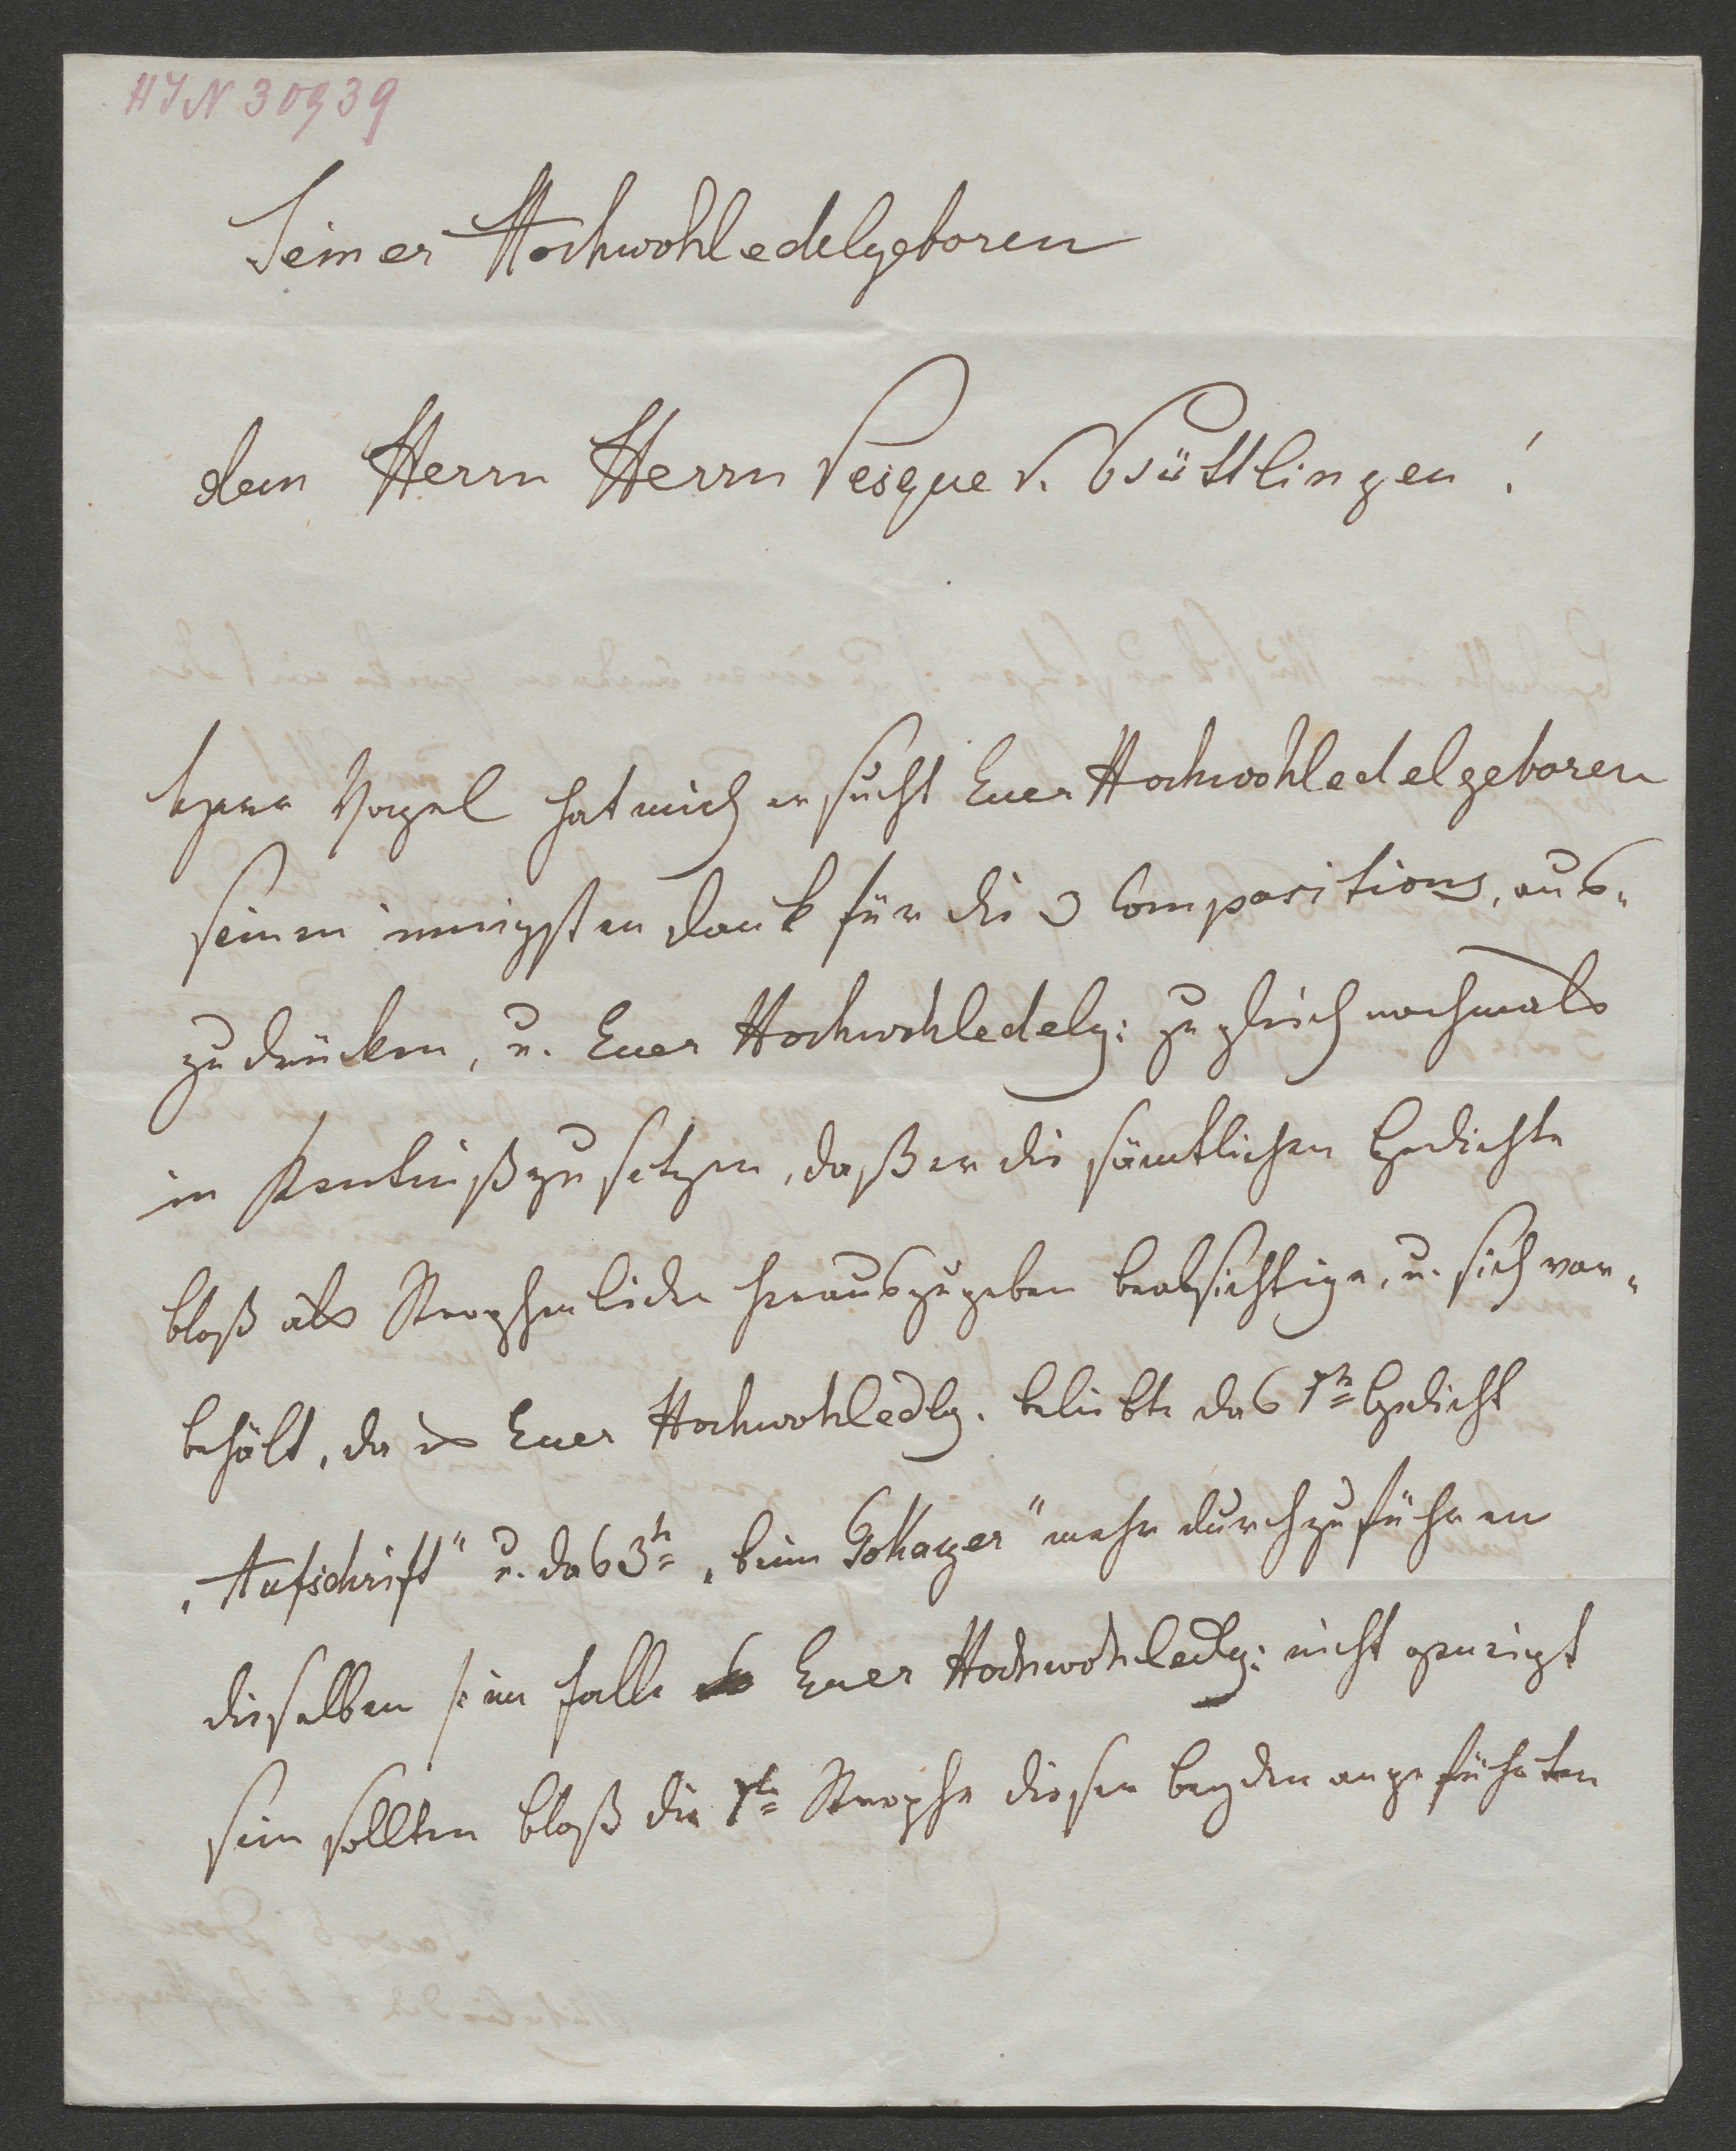 HIN 30939
Seiner Hochwohledelgeboren
dem Herrn Herrn Vesque v. Püttlingen!
Herr Vogl hat mich ersucht Euer Hochwohledelgeboren
seinen innigsten Dank für die 3 Compositions, aus-
zudrücken, u. Euer Hochwohledelg: zugleich nochmals
in Kentniß zu setzen, daß er die sämtlichen Gedichte
bloß als Strophenlieder herauszugeben beabsichtige, u. sich vor-
behält, da es Euer Hochwohledlg. beliebte das 1te Gedicht
„Aufschrift" u. das 3te „beim Tokayer" mehr durchzuführen
dieselben im Falle Euer Hochwohledlg: nicht geneigt
sein sollten bloß die 1te Strophe dieser beyden angeführten